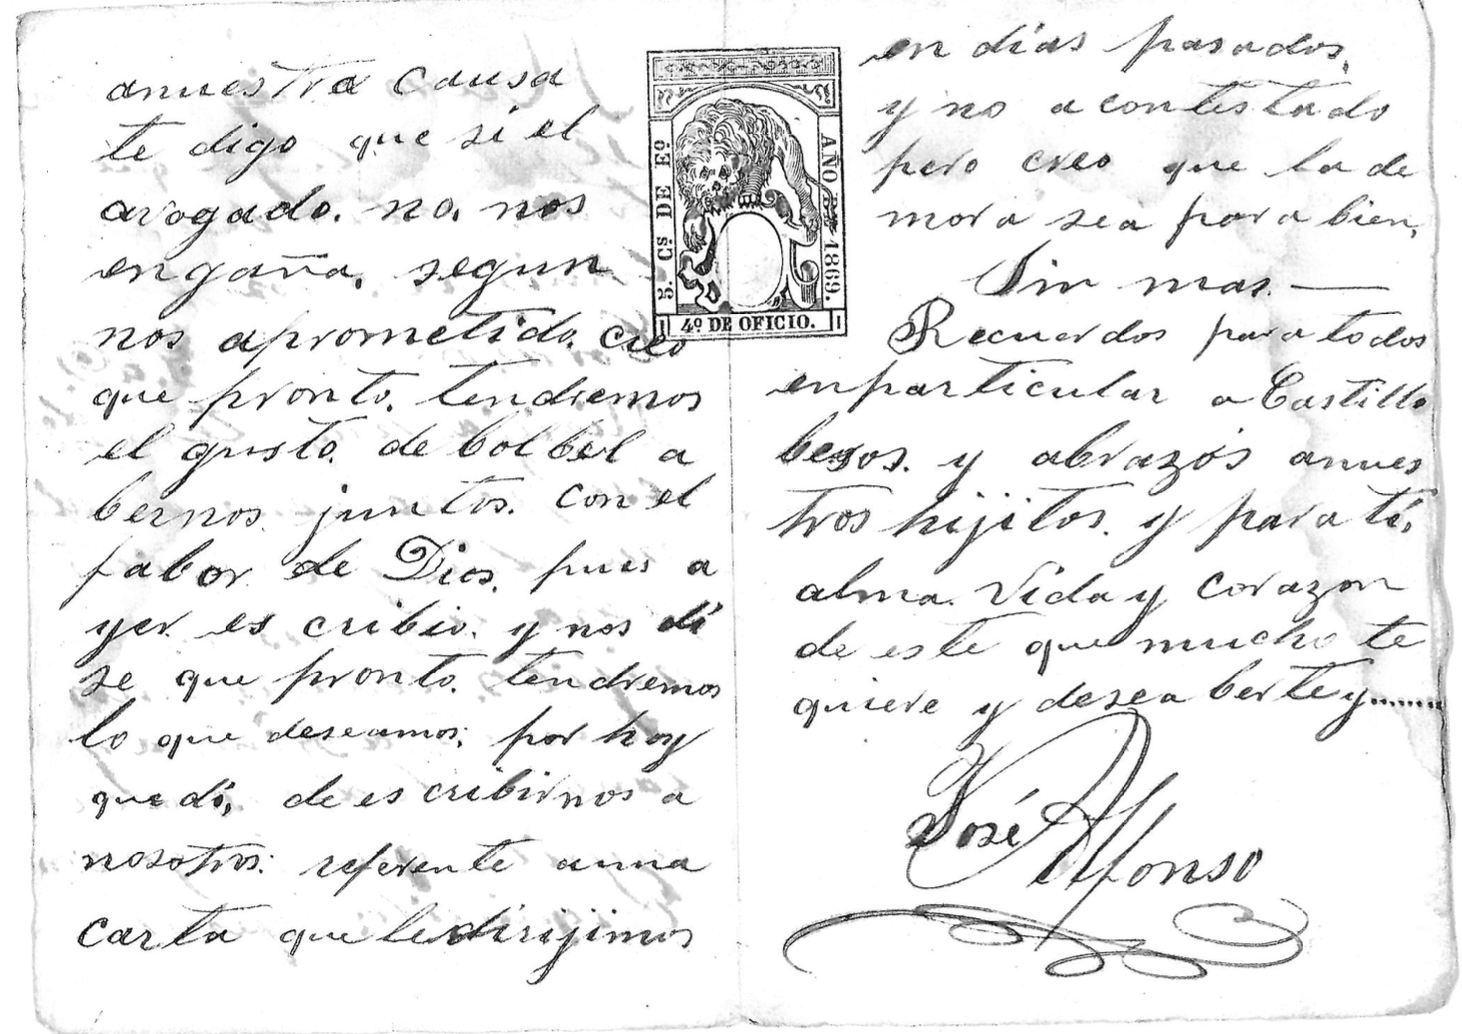 anuestra causa
te digo que si el
avogado. no. nos
engaña. segun
nos aprometido. creo
que pronto. tendremos
el gusto. de bolbel a
bernos juntos. con el
fabor de Dios. pues a
yer es cribio. y nos di
se que pronto. tendremos
lo que deseamos; por hoy
quedó, de es cribirnos a
nosotros: referente auna
carta que ledirijimos
5. Cs DE Eo
AÑO DE 1869.
4º DE OFICIO.
en días pasados,
y no a contestado
pero creo que la de
mora sea para bien,
Sin mas. —
Recuerdos para todos
enparticular a Castillo
besos. y abrazos anues
tros hijitos. y para tí,
alma. Vida y corazon
de este que mucho te
quiere y desea berte y........
José Alfonso